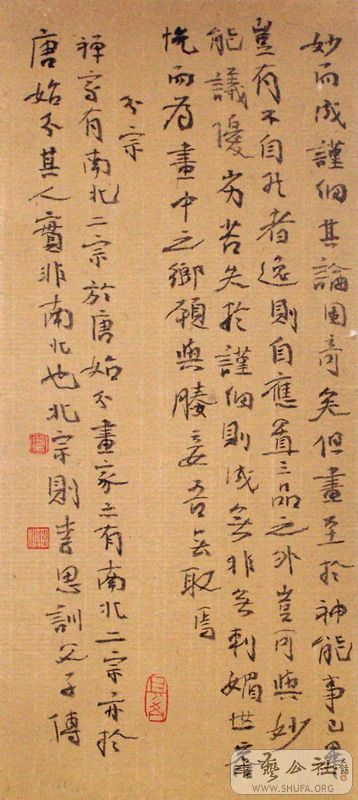 妙而成謹細其論固奇矣但畫至於神能事已畢
豈有不自然者逸則自應置三品之外豈可與妙
能議優劣若失於謹細則成無非無刺媚世容
悅而為畫中之鄉愿與媵妾吾無取焉
分宗
禪家有南北二宗於唐始分畫家亦有南北二宗亦於
唐始分其人實非南北也北宗則李思訓父子傳
藝公社
WWW.SHUFA.ORG